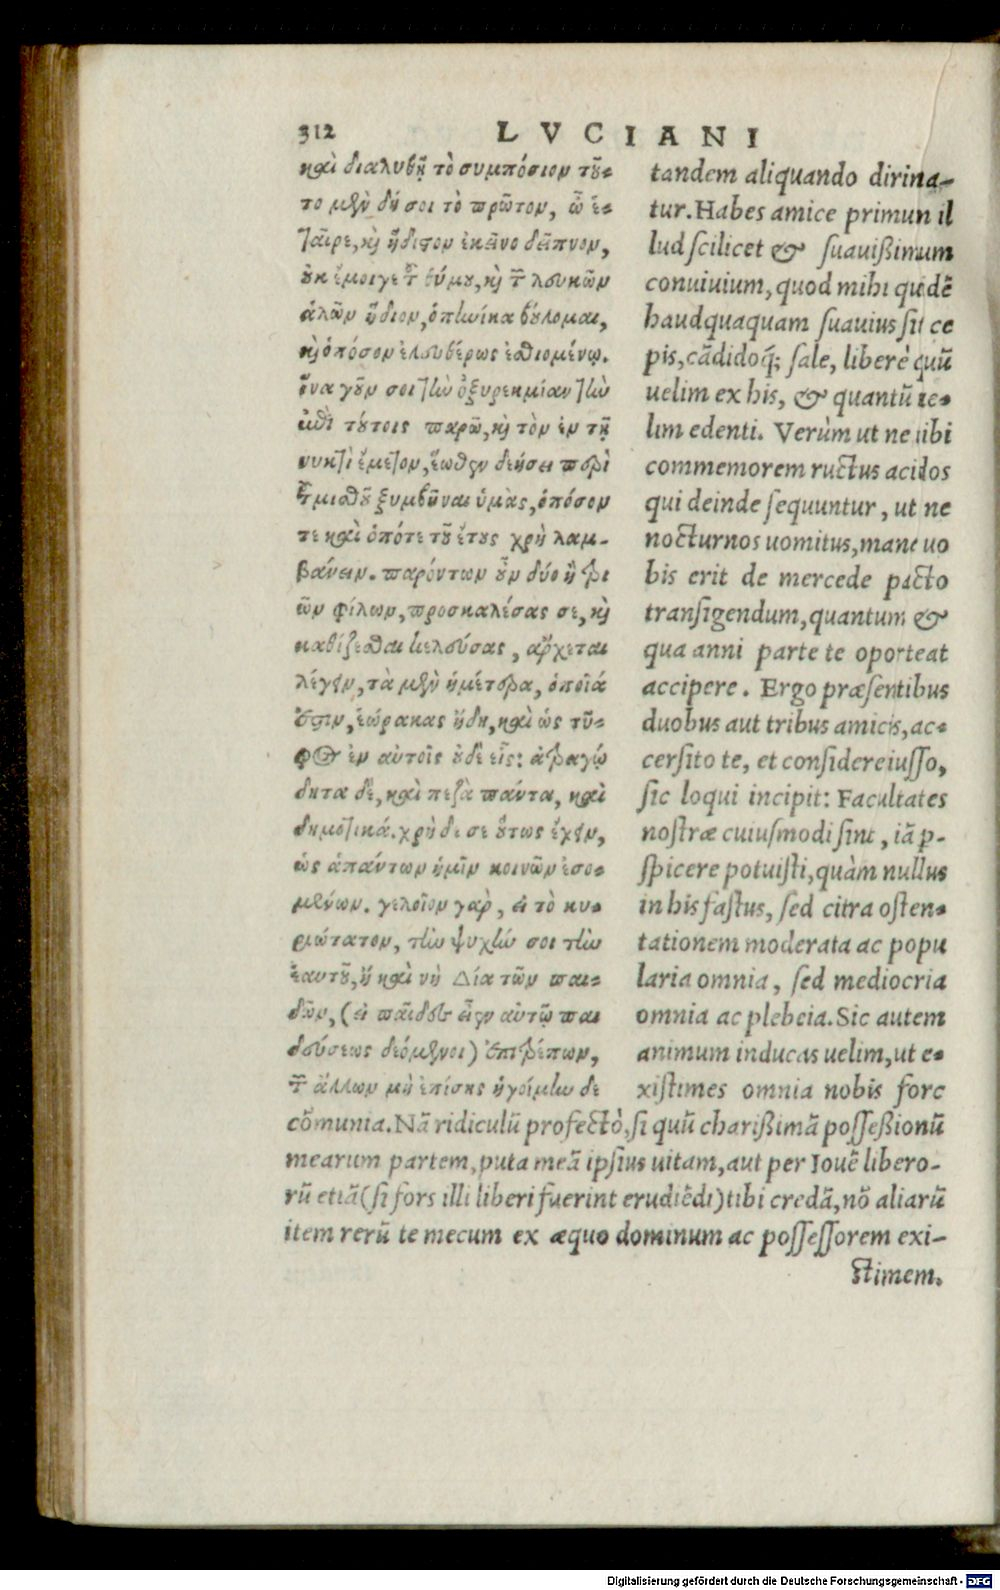 312
LVCIANI
καὶ διαλυθῇ τὸ συμπόσιον τοῦ-
το μὲν δή σοι τὸ πρῶτον, ὦ ἑ-
ταῖρε, καὶ ἥδιστον ἐκεῖνο δεῖπνον,
οὐκ ἔμοιγε τοῦ θύμου, καὶ τῶν λευκῶν
ἁλῶν ἥδιον, ὁπηνίκα βούλομαι,
καὶ ὁπόσον ἐλευθέρως ἐσθιομένῳ.
ἵνα γοῦν σοι τὴν ὀξυρεγμίαν τὴν
ἐπὶ τούτοις παρῶ, καὶ τὸν ἐν τῇ
νυκτὶ ἔμετον, ἕωθεν δεήσει περὶ
τοῦ μισθοῦ ξυμβῆναι ὑμᾶς, ὁπόσον
τε καὶ ὁπότε τοῦ ἔτους χρὴ λαμ-
βάνειν. παρόντων οὖν δύο ἢ τρι
ῶν φίλων, προσκαλέσας σε, καὶ
καθίζεσθαι κελεύσας, ἄρχεται
λέγειν, τὰ μὲν ἡμέτερα, ὁποῖά
ἐστιν, ἑώρακας ἤδη, καὶ ὡς τῦ-
φος ἐν αὐτοῖς οὐδὲ εἷς: ἀτραγῴ
δητα δὲ, καὶ πεζὰ πάντα, καὶ
δημοτικά. χρὴ δέ σε οὕτως ἔχειν,
ὡς ἁπάντων ἡμῖν κοινῶν ἐσο-
μένων. γελοῖον γὰρ, εἰ τὸ κυ-
ριώτατον, τὴν ψυχήν σοι τὴν
ἑαυτοῦ, ἢ καὶ νὴ Δία τῶν παι-
δῶν, (εἰ παῖδες εἶεν αὐτῷ παι
δεύσεως δεόμενοι) ἐπιτρέπων,
τῶν ἄλλων μὴ ἐπίσης ἡγοίμην δε
tandem aliquando dirima-
tur. Habes amice primum il
lud scilicet & suauißimum
conuiuium, quod mihi quidẽ
haudquaquam suauius sit ce
pis, cãdidoq́; sale, liberè quũ
uelim ex his, & quantũ ue-
lim edenti. Verùm ut ne tibi
commemorem ructus acidos
qui deinde sequuntur, ut ne
nocturnos uomitus, mane uo
bis erit de mercede pacto
transigendum, quantum &
qua anni parte te oporteat
accipere. Ergo præsentibus
duobus aut tribus amicis, ac-
cersito te, et considere iusso,
sic loqui incipit: Facultates
nostræ cuiusmodi sint, iã p-
spicere potuisti, quàm nullus
in his fastus, sed citra osten-
tationem moderata ac popu
laria omnia, sed mediocria
omnia ac plebeia. Sic autem
animum inducas uelim, ut e-
xistimes omnia nobis fore
cõmunia. Nã ridiculũ profectò, si quũ charißimã possessionũ
mearum partem, puta meã ipsius uitam, aut per Iouẽ libero-
rũ etiã (si fors illi liberi fuerint erudiẽdi) tibi credã, nõ aliarũ
item rerũ te mecum ex æquo dominum ac possessorem exi-
stimem.
Digitalisierung gefördert durch die Deutsche Forschungsgemeinschaft - DFG